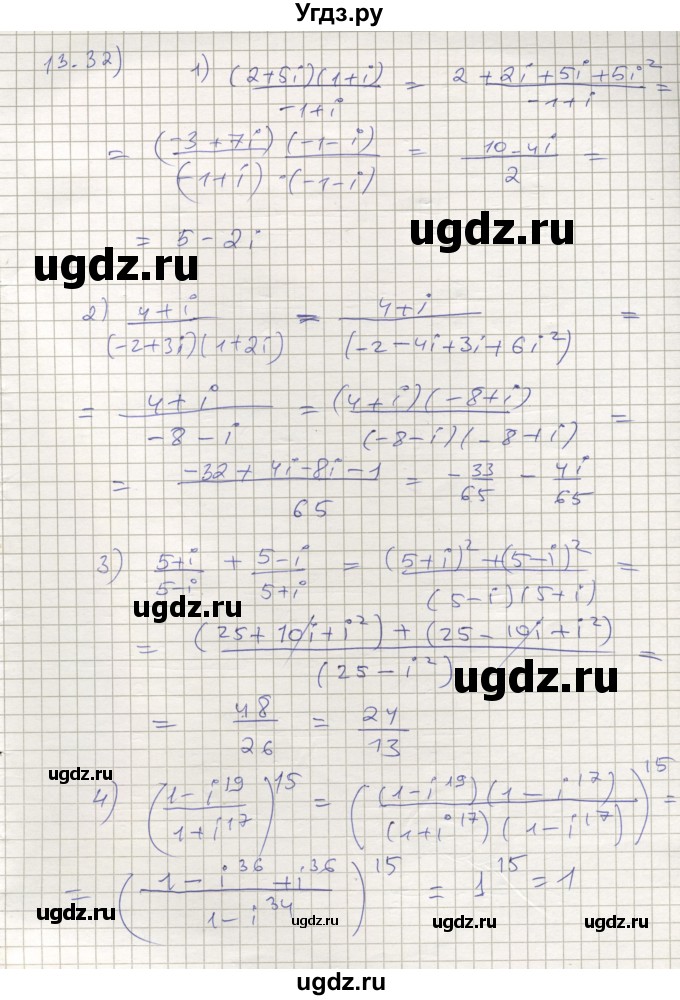 Угдз.ру
13.32) 1) (2+5i)(1+i) / -1+i = 2+2i+5i+5i² / -1+i =
= (-3+7i)(-1-i) / (-1+i)·(-1-i) = 10-4i / 2 =
= 5-2i
ugdz.ru
ugdz.ru
2) 4+i / (-2+3i)(1+2i) = 4+i / (-2-4i+3i+6i²) =
= 4+i / -8-i = (4+i)(-8+i) / (-8-i)(-8+i) =
= -32+4i-8i-1 / 65 = -33/65 - 4i/65
3) 5+i / 5-i + 5-i / 5+i = (5+i)²+(5-i)² / (5-i)(5+i) =
ugdz.ru
ugdz.ru
= (25+10i+i²)+(25-10i+i²) / (25-i²) =
ugdz.ru
= 48/26 = 24/13
ugdz.ru
4) (1-i¹⁹ / 1+i¹⁷)¹⁵ = ((1-i¹⁹)(1-i¹⁷) / (1+i¹⁷)(1-i¹⁷))¹⁵ =
= (1-i³⁶+i³⁶ / 1-i³⁴)¹⁵ = 1¹⁵ = 1
ugdz.ru
ugdz.ru
ugdz.ru
ugdz.ru